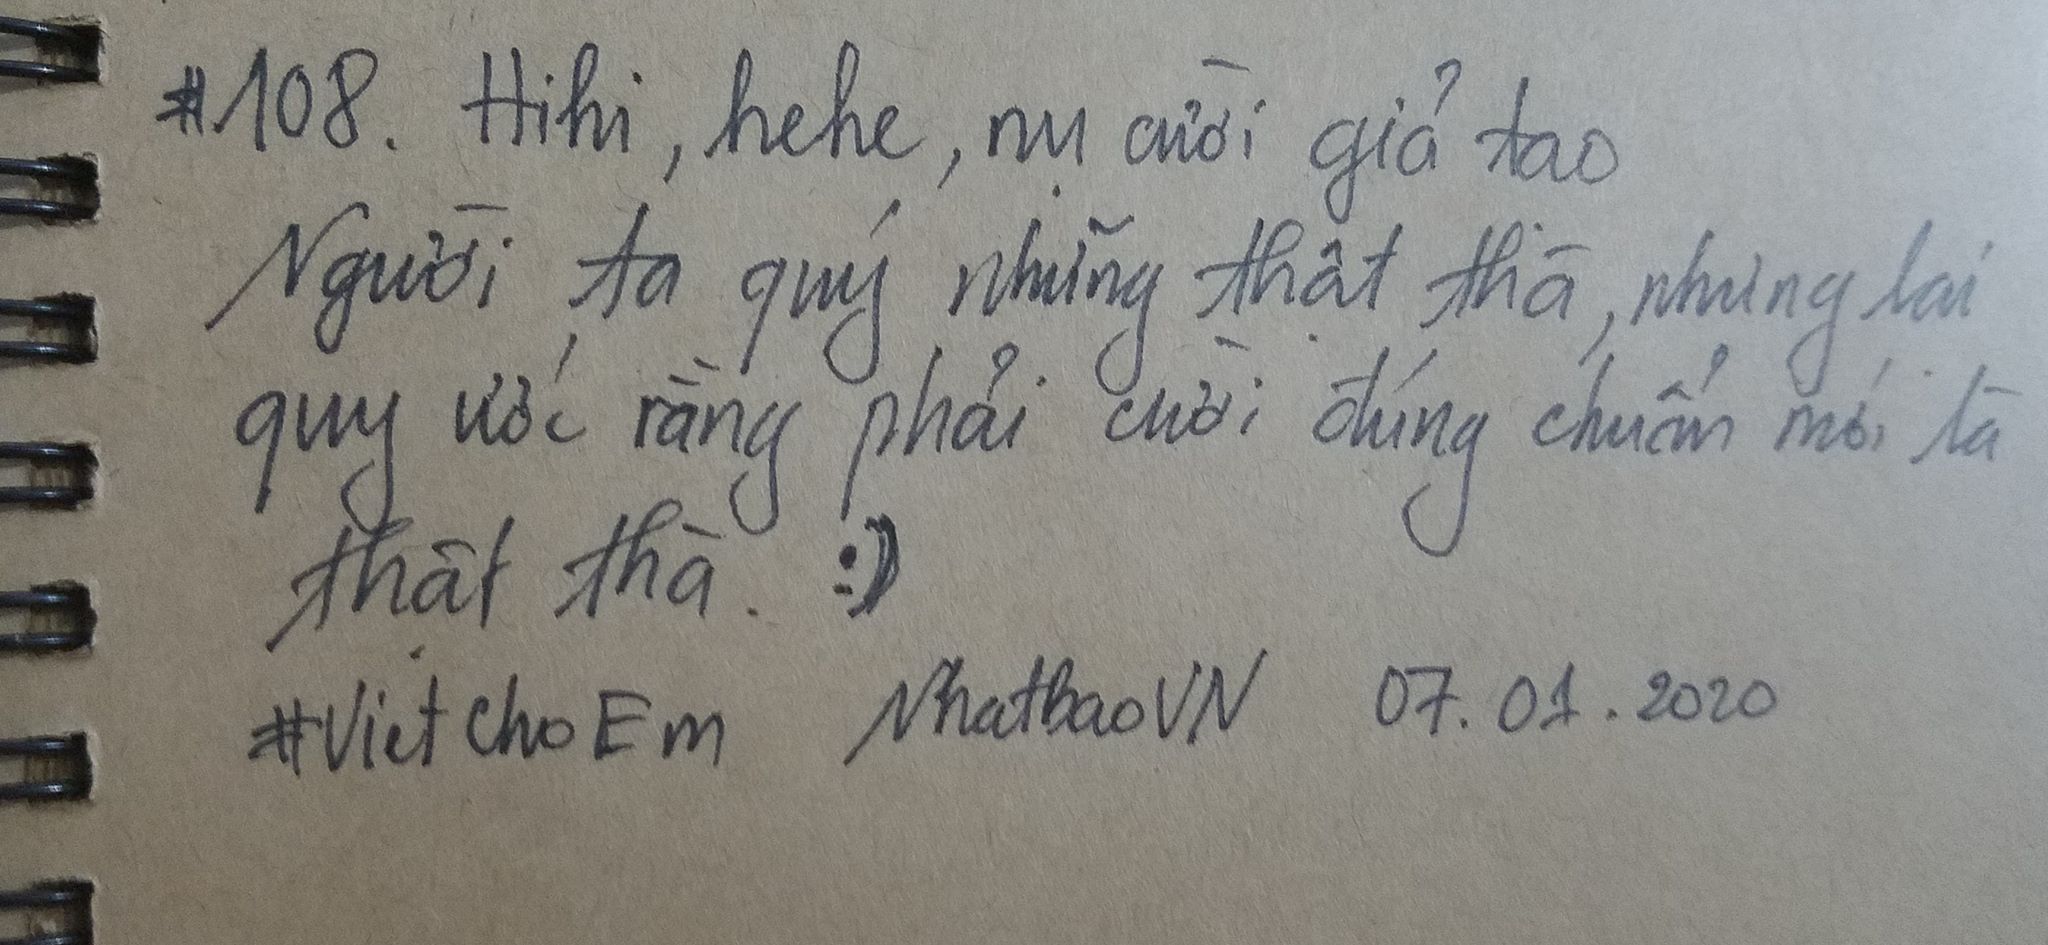 #108. Hihi, hehe, nụ cười giả tạo
Người ta quý những thật thà, nhưng lại
quy ước rằng phải cười đúng chuẩn mới là
thật thà. :)
#VietchoEm NhatbaoVN 07.01.2020